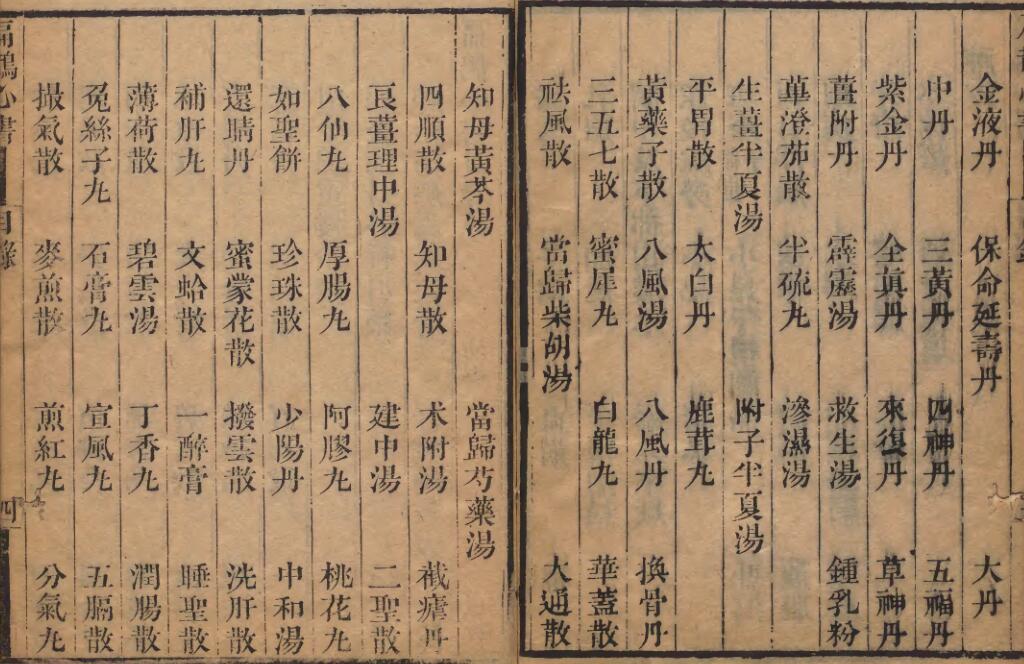 金液丹 保命延壽丹 大丹
中丹 三黃丹 四神丹 五福丹
紫金丹 全眞丹 來復丹 草神丹
薑附丹 霹靂湯 救生湯 鍾乳粉
蓽澄茄散 半硫丸 滲濕湯
生薑半夏湯 附子半夏湯
平胃散 太白丹 鹿茸丸
黃藥子散 八風湯 八風丹 換骨丹
三五七散 蜜犀丸 白龍丸 華蓋散
祛風散 當歸柴胡湯 大通散
知母黃芩湯 當歸芍藥湯
四順散 知母散 术附湯 截瘧丹
良薑理中湯 建中湯 二聖散
八仙丸 厚腸丸 阿膠丸 桃花丸
如聖餅 珍珠散 少陽丹 中和湯
還睛丹 蜜蒙花散 撥雲散 洗肝散
補肝丸 文蛤散 一醉膏 睡聖散
薄荷散 碧雲湯 丁香丸 潤腸散
兔絲子丸 石膏丸 宣風丸 五膈散
撮氣散 麥煎散 煎紅丸 分氣丸
扁鵲心書 目錄 四